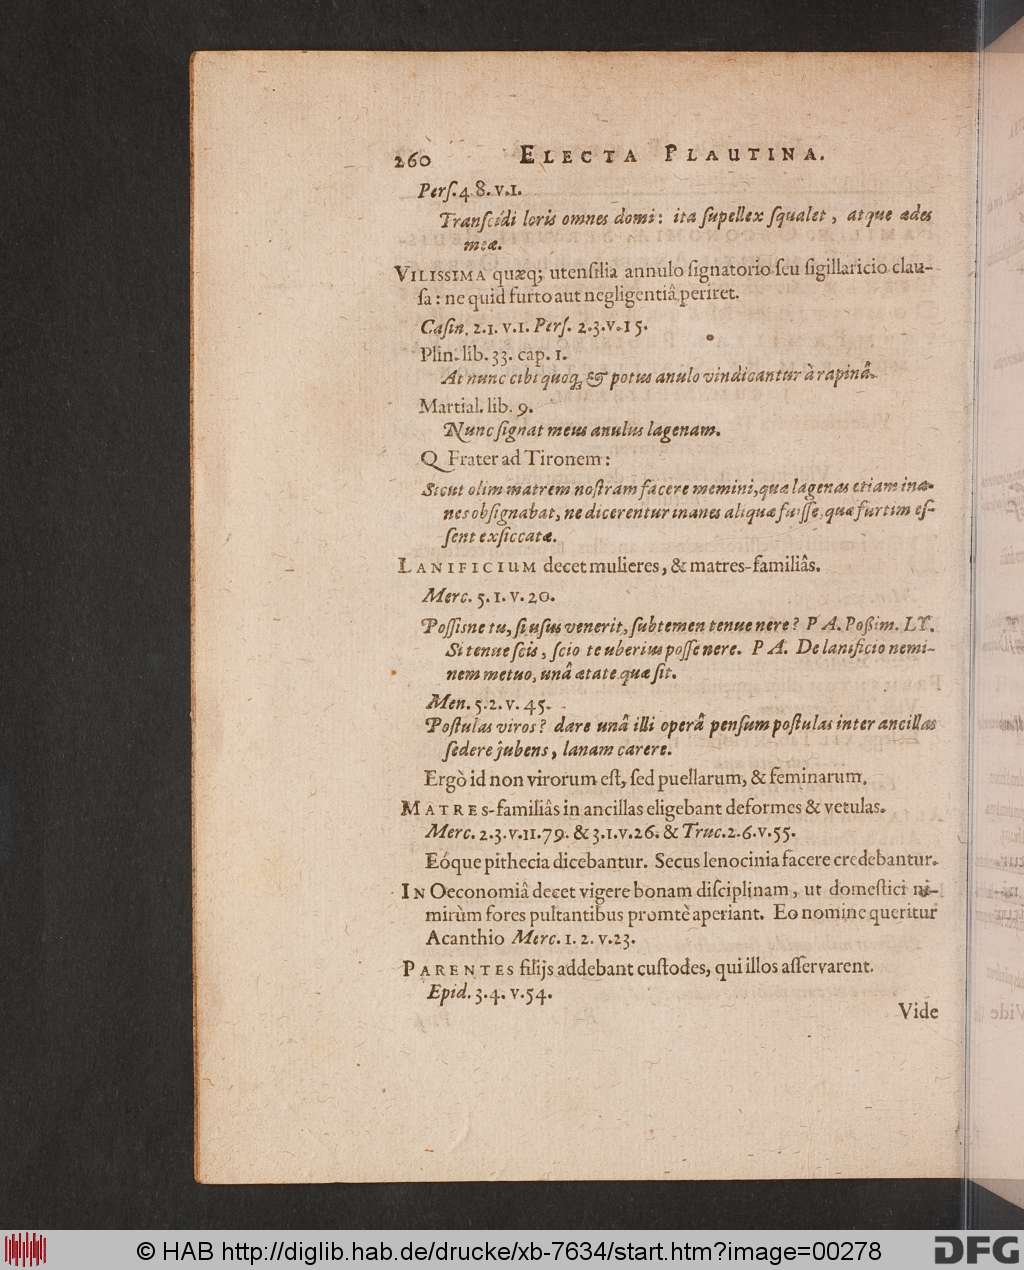 260 ELECTA PLAUTINA.
Perſ. 4 8. v.1.
Tranſcidi loris omnes domi: ita ſupellex ſqualet, atque ædes
meæ.
VILISSIMA quæq; utenſilia annulo ſignatorio ſeu ſigillaricio clau-
ſa: ne quid furto aut negligentiâ periret.
Caſin. 2.1. v.1. Perſ. 2.3.v.15.
Plin. lib. 33. cap. 1.
At nunc cibi quoq; & potus anulo vindicantur à rapinâ.
Martial. lib. 9.
Nunc ſignat meus anulus lagenam.
Q Frater ad Tironem:
Sicut olim matrem noſtram facere memini, quæ lagenas etiam inæ-
nes obſignabat, ne dicerentur inanes aliquæ fuiſſe, quæ furtim eſ-
ſent exſiccatæ.
LANIFICIUM decet mulieres, & matres-familiâs.
Merc. 5.1. v. 20.
Poſſisne tu, ſi uſus venerit, ſubtemen tenue nere? PA. Poßim. LY.
Si tenue ſcis, ſcio te uberius poſſe nere. PA. De lanificio nemi-
nem metuo, unâ ætate quæ ſit.
Men. 5.2. v. 45.
Poſtulas viros? dare unâ illi operâ penſum poſtulas inter ancillas
ſedere jubens, lanam carere.
Ergò id non virorum eſt, ſed puellarum, & feminarum.
MATRES-familiâs in ancillas eligebant deformes & vetulas.
Merc. 2.3.v.11.79. & 3.1.v.26. & Truc. 2.6.v.55.
Eóque pithecia dicebantur. Secus lenocinia facere credebantur.
IN Oeconomiâ decet vigere bonam diſciplinam, ut domeſtici ni-
mirùm fores pultantibus promtè aperiant. Eo nomine queritur
Acanthio Merc. 1. 2. v.23.
PARENTES filijs addebant cuſtodes, qui illos aſſervarent.
Epid. 3.4. v.54.
Vide
© HAB http://diglib.hab.de/drucke/xb-7634/start.htm?image=00278
DFG